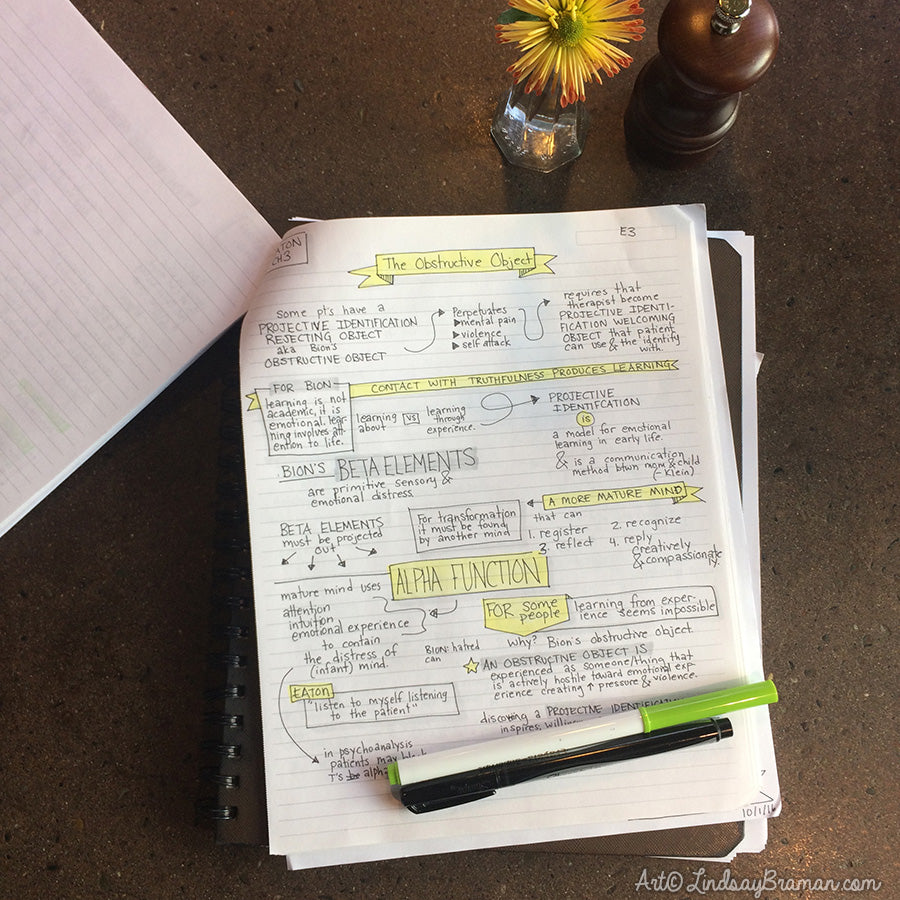 ATON
CH3
E3
The Obstructive Object
Some pt's have a
PROJECTIVE IDENTIFICATION
REJECTING OBJECT
aka Bion's
OBSTRUCTIVE OBJECT
Perpetuates
▶mental pain
▶violence
▶self attack
requires that
therapist become
PROJECTIVE IDENTI-
FICATION WELCOMING
OBJECT that patient
can use & the identify
with.
FOR BION
learning is not
academic, it is
emotional. lear-
ning involves att-
ention to life.
CONTACT WITH TRUTHFULNESS PRODUCES LEARNING
learning
about
vs
learning
through
experience.
PROJECTIVE
IDENTIFCATION
is
a model for emotional
learning in early life.
& is a communication
method btwn mom & child
(-Klein)
BION'S BETA ELEMENTS
are primitive sensory &
emotional distress.
BETA ELEMENTS
must be projected
out
For transformation
it must be found
by another mind
A MORE MATURE MIND
that can
1. register
2. recognize
3. reflect
4. reply
creatively
& compassionately.
mature mind uses
ALPHA FUNCTION
attention
intuition
emotional experience
to contain
the distress of
(infant) mind.
BION: hatred
can
FOR some
people
learning from exper-
ience seems impossible
why? Bion's obstructive object.
☆ AN OBSTRUCTIVE OBJECT IS
experienced as someone/thing that
is actively hostile toward emotional exp-
erience creating ↑ pressure & violence.
EATON
"listen to myself listening
to the patient"
a PROJECTIVE IDENTIFICATION
inspires,
in psychoanalysis
patients may
T's alpha
10/1/1
Art© LindsayBraman.com